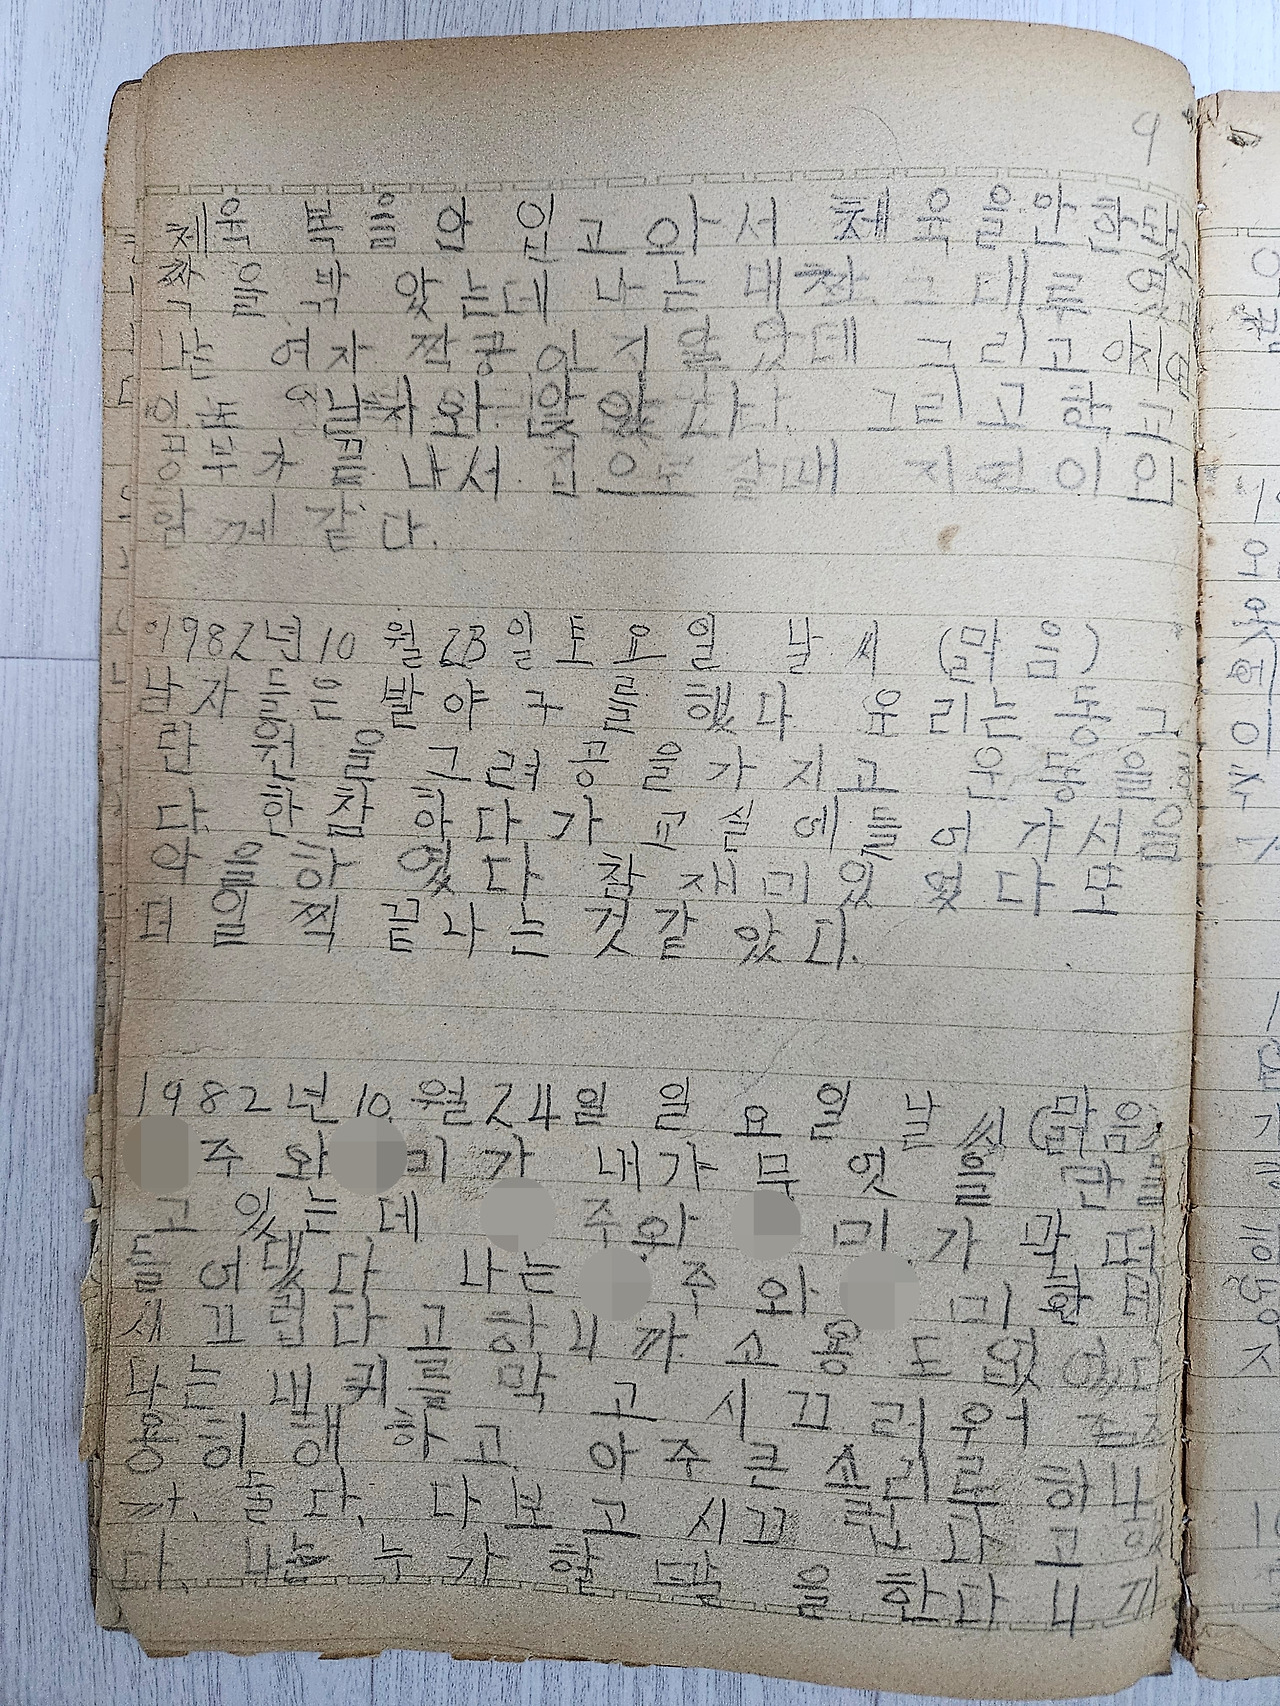 9
체육 복을 안 입고 와서 체육을 안 한다
짝을 밖았는데 나는 내짝 그대루
나는 여자 짝공 아직 을았데 그리고
이는 남자와 앉았다 그리고 한고
공부가 끝나서 집으로 갈때 지연이와
함께 같다.
1982년 10월 23일 토요일 날씨 (맑음)
남자들은 발야구를 했다 우리는 동그
란 원을 그려 공을 가지고 운동을
다. 한참 하다가 교실에 들어가서 음
악을 하였다 참 재미있었다 모
더 일찍 끝나는 것 같았다.
1982년 10월 24일 일요일 날씨 (맑음)
주와 미가 내가 무엇을 만들
고 있는데 주와 미가 막 떠
들어댔다 나는 주와 미 한테
새끄럽다고 하니까 소용도 없었다
나는 내 귀를 막고 시끄러워 조
용히 해 하고 아주 큰 소리루 하니
까. 둘다. 다보고 시끄럽다고
다. 나는 누가 할 말을 한다니까